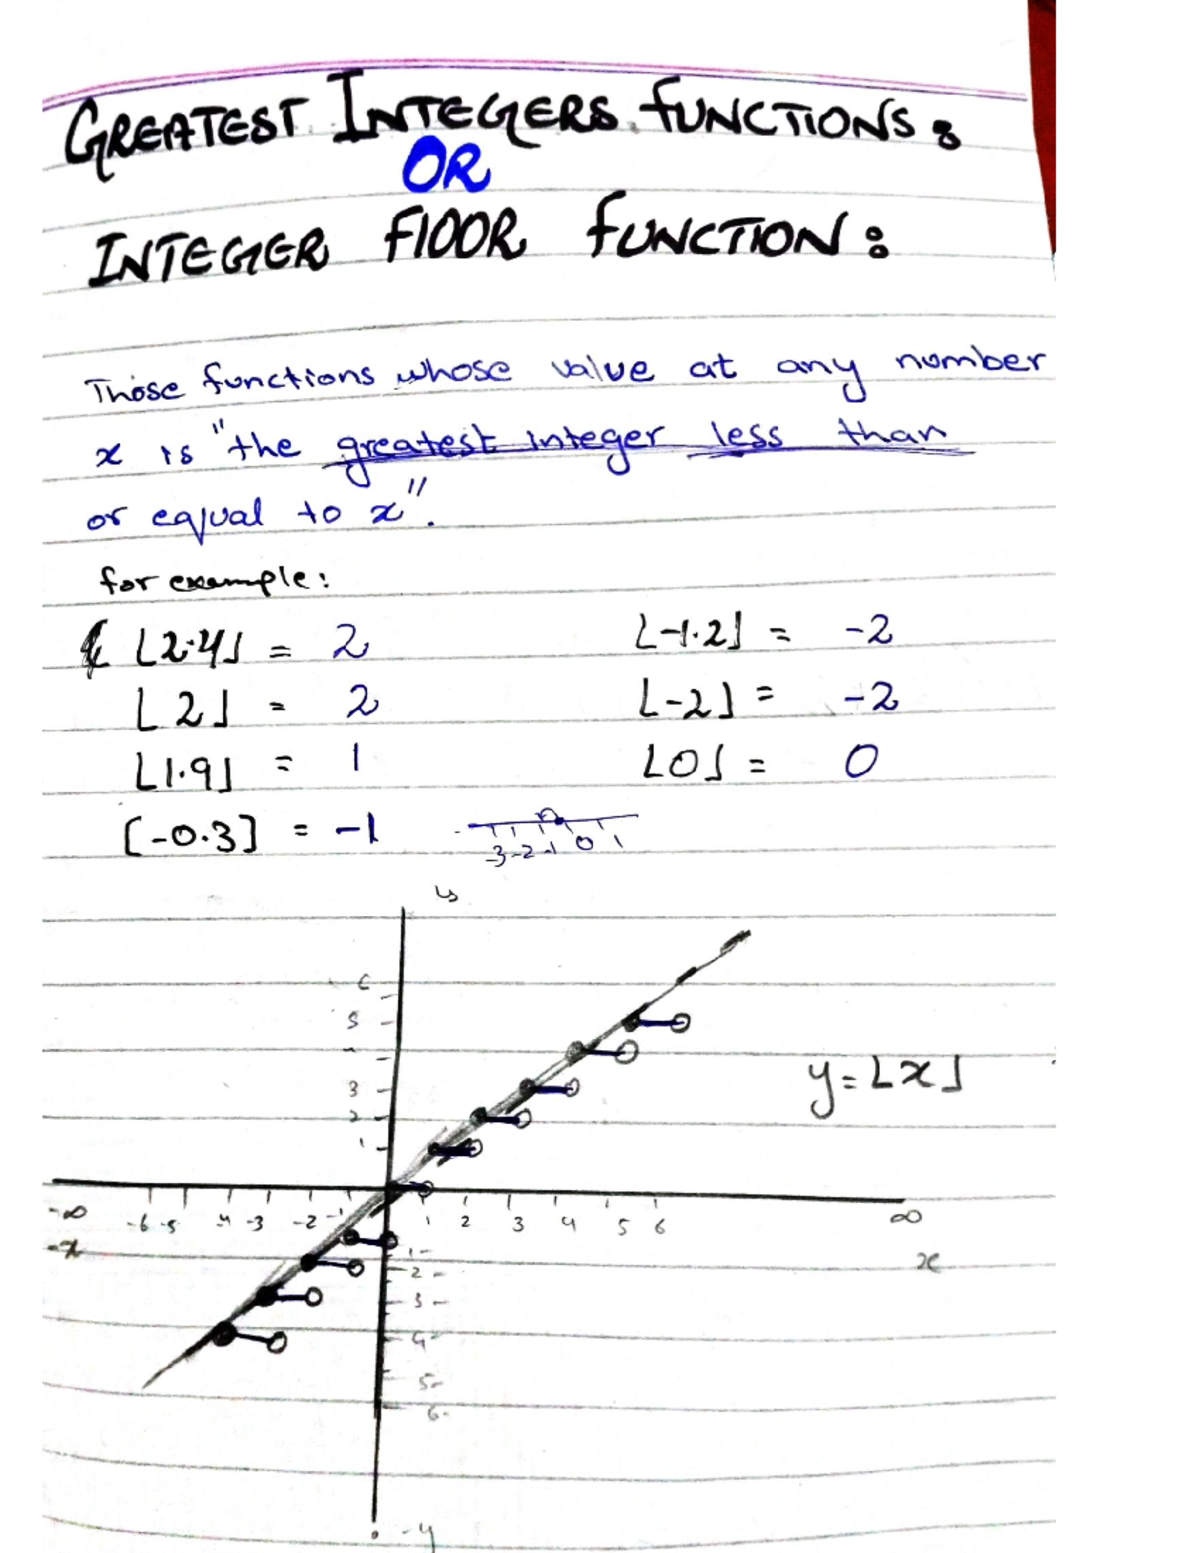 GREATEST INTEGERS FUNCTIONS:
OR
INTEGER FLOOR FUNCTION:
Those functions whose value at any number
x is "the greatest integer less than
or equal to x".
for example:
⌊2.4⌋ = 2 ⌊-1.2⌋ = -2
⌊2⌋ = 2 ⌊-2⌋ = -2
⌊1.9⌋ = 1 ⌊0⌋ = 0
[-0.3] = -1
-3 -2 -1 0 1
y
6
5
3
2
1
y=⌊x⌋
-∞ -6 -5 -4 -3 -2 -1 1 2 3 4 5 6 ∞
-x x
1-
2-
3-
4-
5-
6-
-y